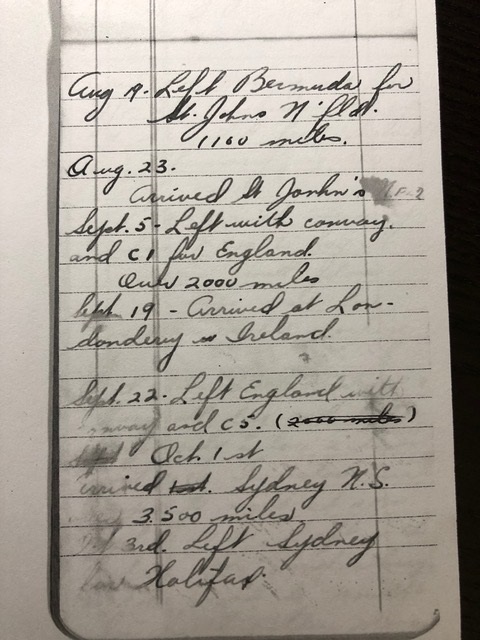 Aug 19. Left Bermuda for
St. Johns N'fld.
1160 miles.
Aug. 23.
Arrived St Jonhn's
Sept. 5 - Left with convoy.
and C1 for England.
Over 2000 miles
Sept 19 - Arrived at Lon-
donderry Ireland.
Sept. 22. Left England with
convoy and C5. (2000 miles)
Oct. 1st
arrived 1st. Sydney N.S.
3.500 miles
3rd. Left Sydney
Halifax.